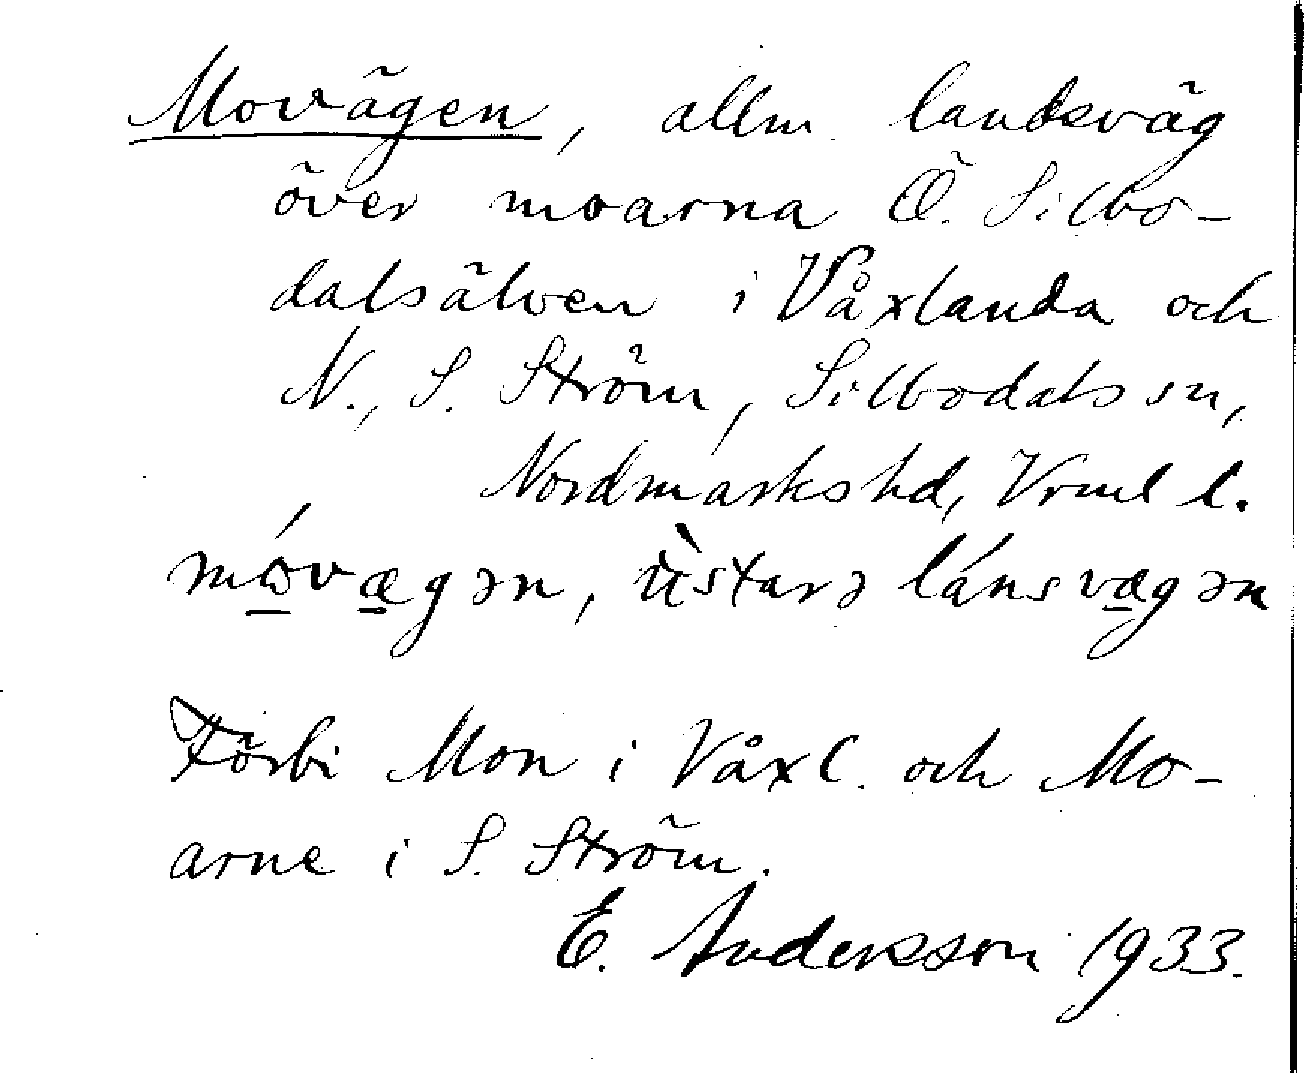 Movägen, allm. landsväg
över moarna Ö. Silbo-
dalsälven i Våxlanda och
N., S. Ström, Silbodals sn,
Nordmarks hd, Vrml l.
mώ̲væ̲gən, ùstarə lánsvæ̲gən
Förbi Mon i Våxl. och Mo-
arne i S. Ström.
E. Andersson 1933.